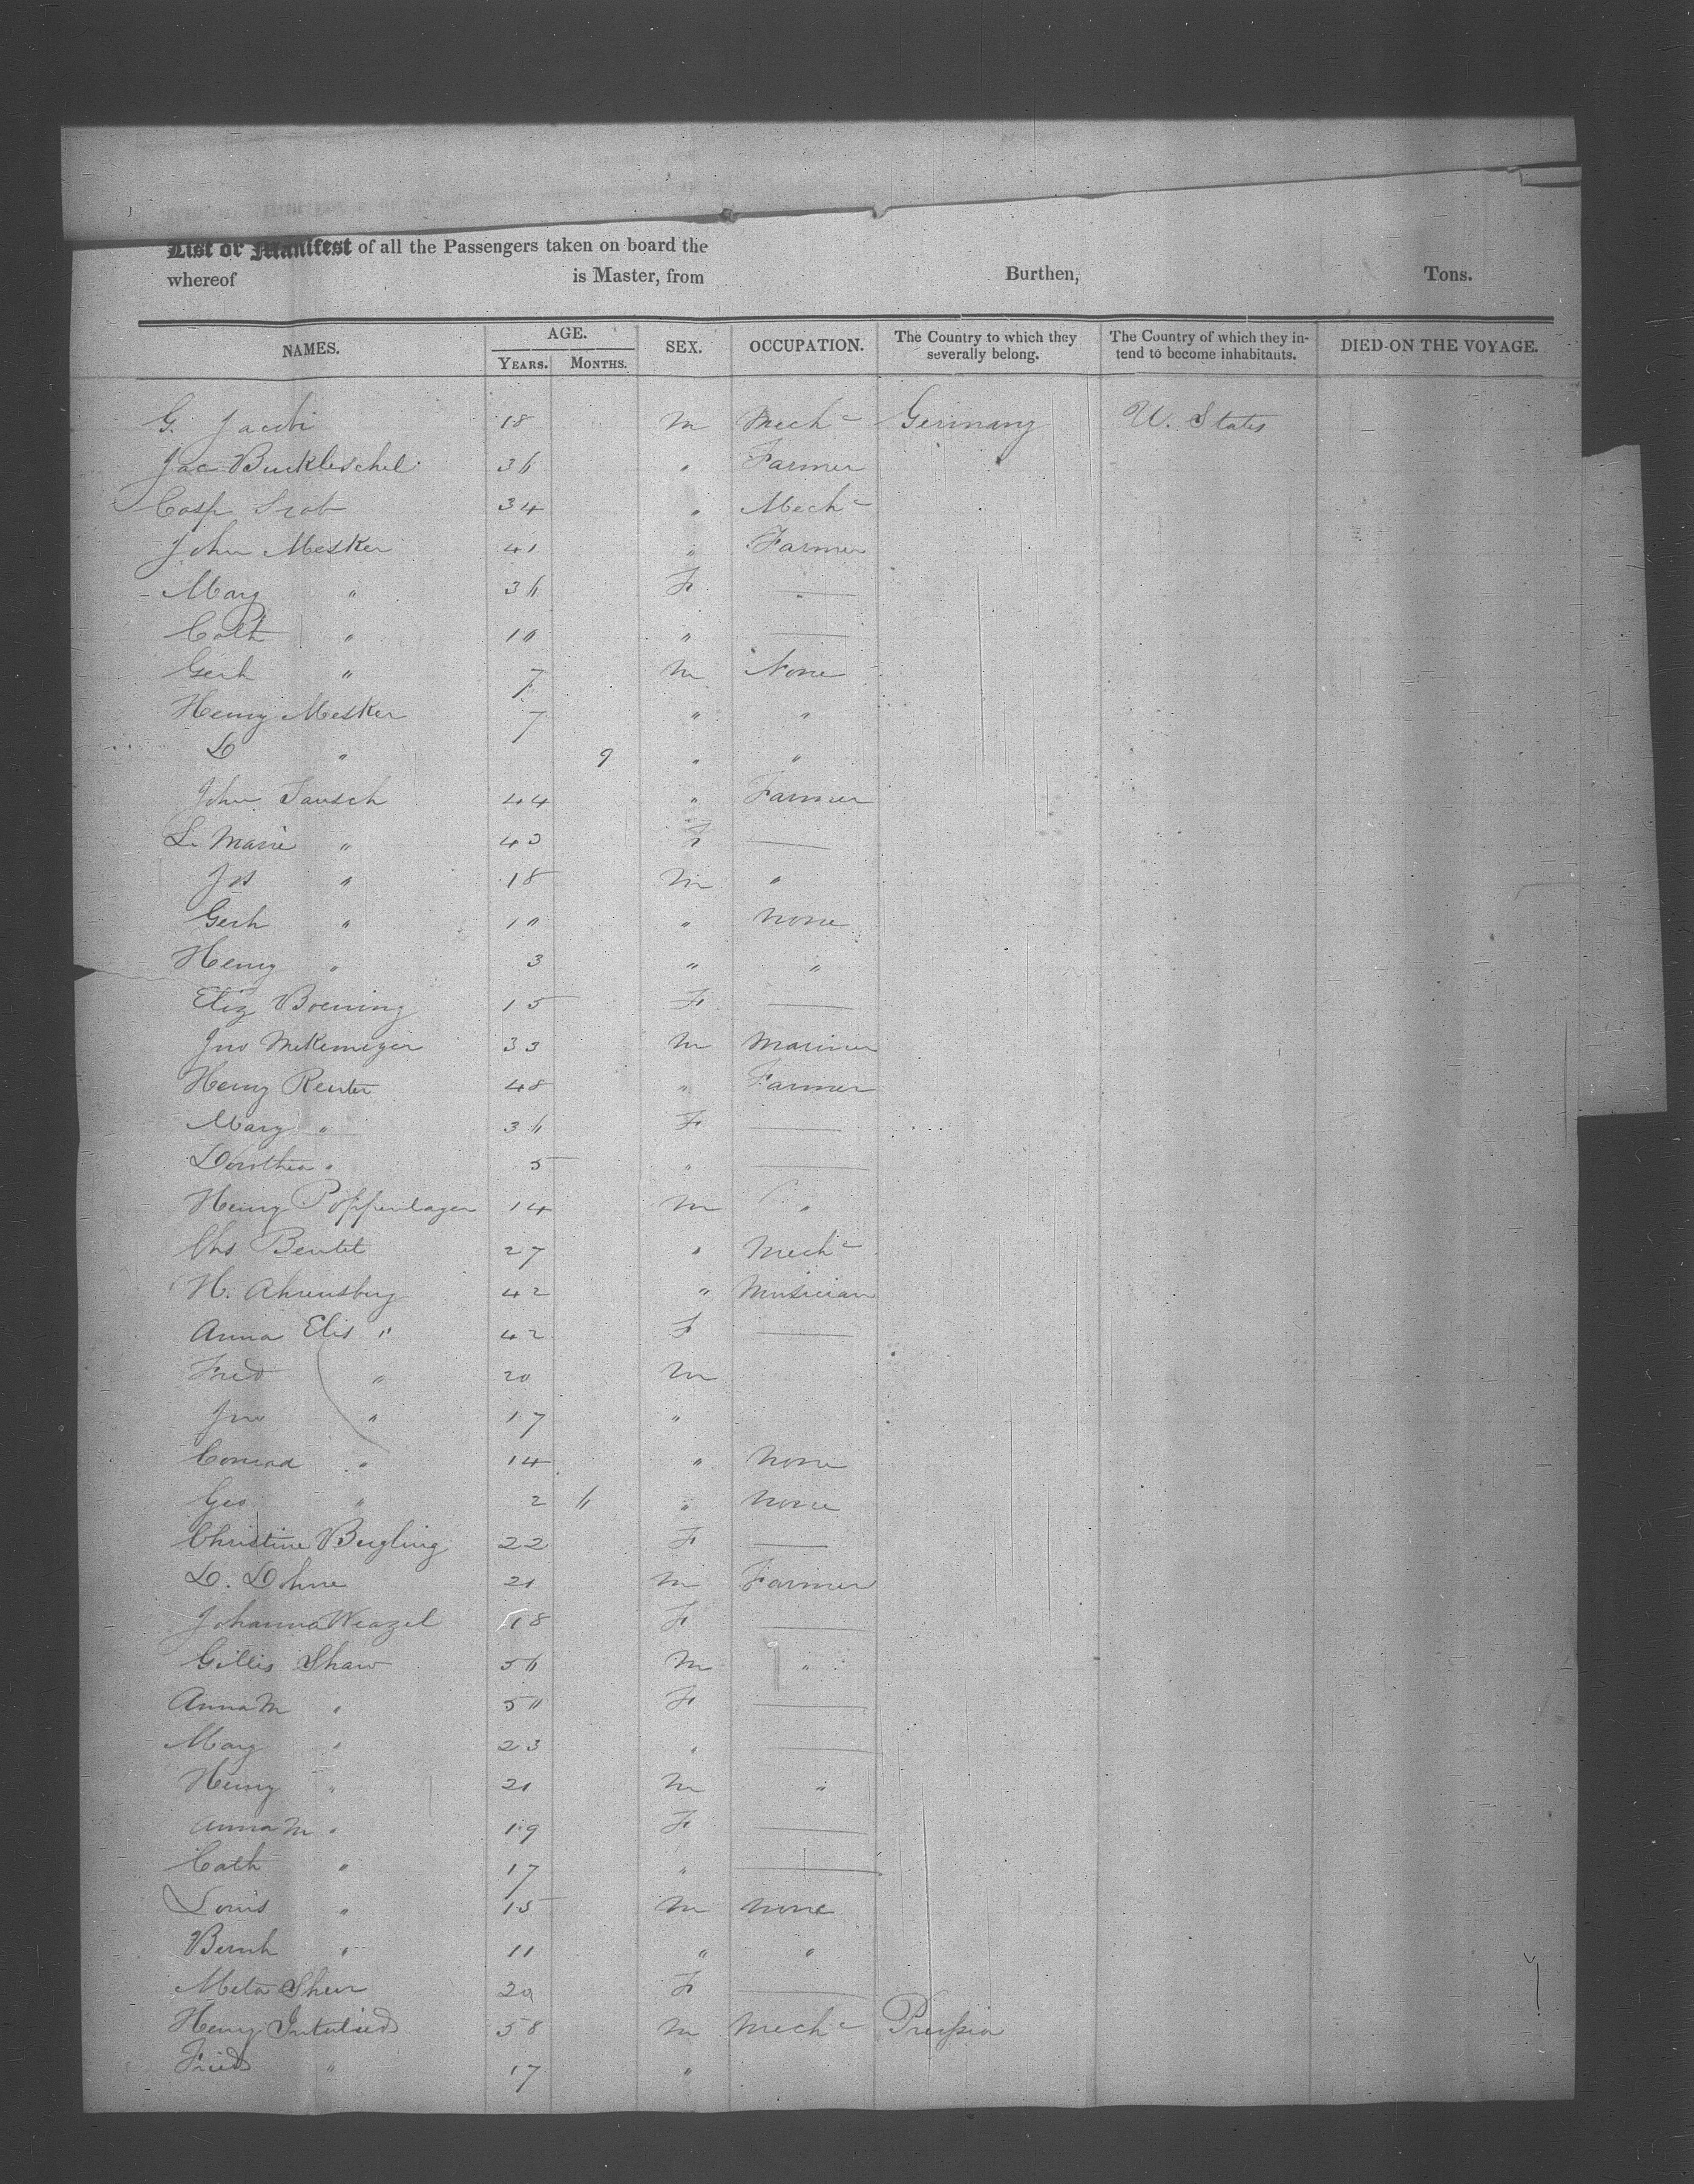 List or Manifest of all the Passengers taken on board the
whereof is Master, from Burthen, Tons.
NAMES. AGE. YEARS. MONTHS. SEX. OCCUPATION. The Country to which they severally belong. The Country of which they intend to become inhabitants. DIED ON THE VOYAGE.
G. Jacobi 18 M Mech c Germany U. States
Jac 36 " Farmer
Casp 34 " Mech c
John Mesker 41 " Farmer
Mary " 36 F —
Cath " 10 " —
Gerh " 7 M None
Henry Mesker 7 " "
D " 9 " "
John Tausch 44 " Farmer
L. Marie " 43 F —
Jos " 18 M "
Gerh " 10 " none
Henry " 3 " "
Eliz Boening 15 F —
Jno Mekemeyer 33 M Mariner
Henry Reuter 48 " Farmer
Mary " 36 F —
Dorothea " 5 " —
Henry Poppenhagen 14 M "
Chs Beutel 27 " Mech c
H. Ahrensberg 42 " Musician
Anna Elis " 42 F —
Fred " 20 M
Jno " 17 "
Conrad " 14 " none
Geo " 2 6 " none
Christine Bergling 22 F —
D. Dohne 21 M Farmer
Johanna Weazel 18 F —
Gillis Shaw 56 M "
Anna M " 50 F —
Mary " 23 " —
Henry " 21 M "
Anna M " 19 F —
Cath " 17 " —
Louis " 15 M none
Bernh " 11 " "
Meta Sheer 20 F —
Henry 58 M Mech c Prussia
Fried " 17 "